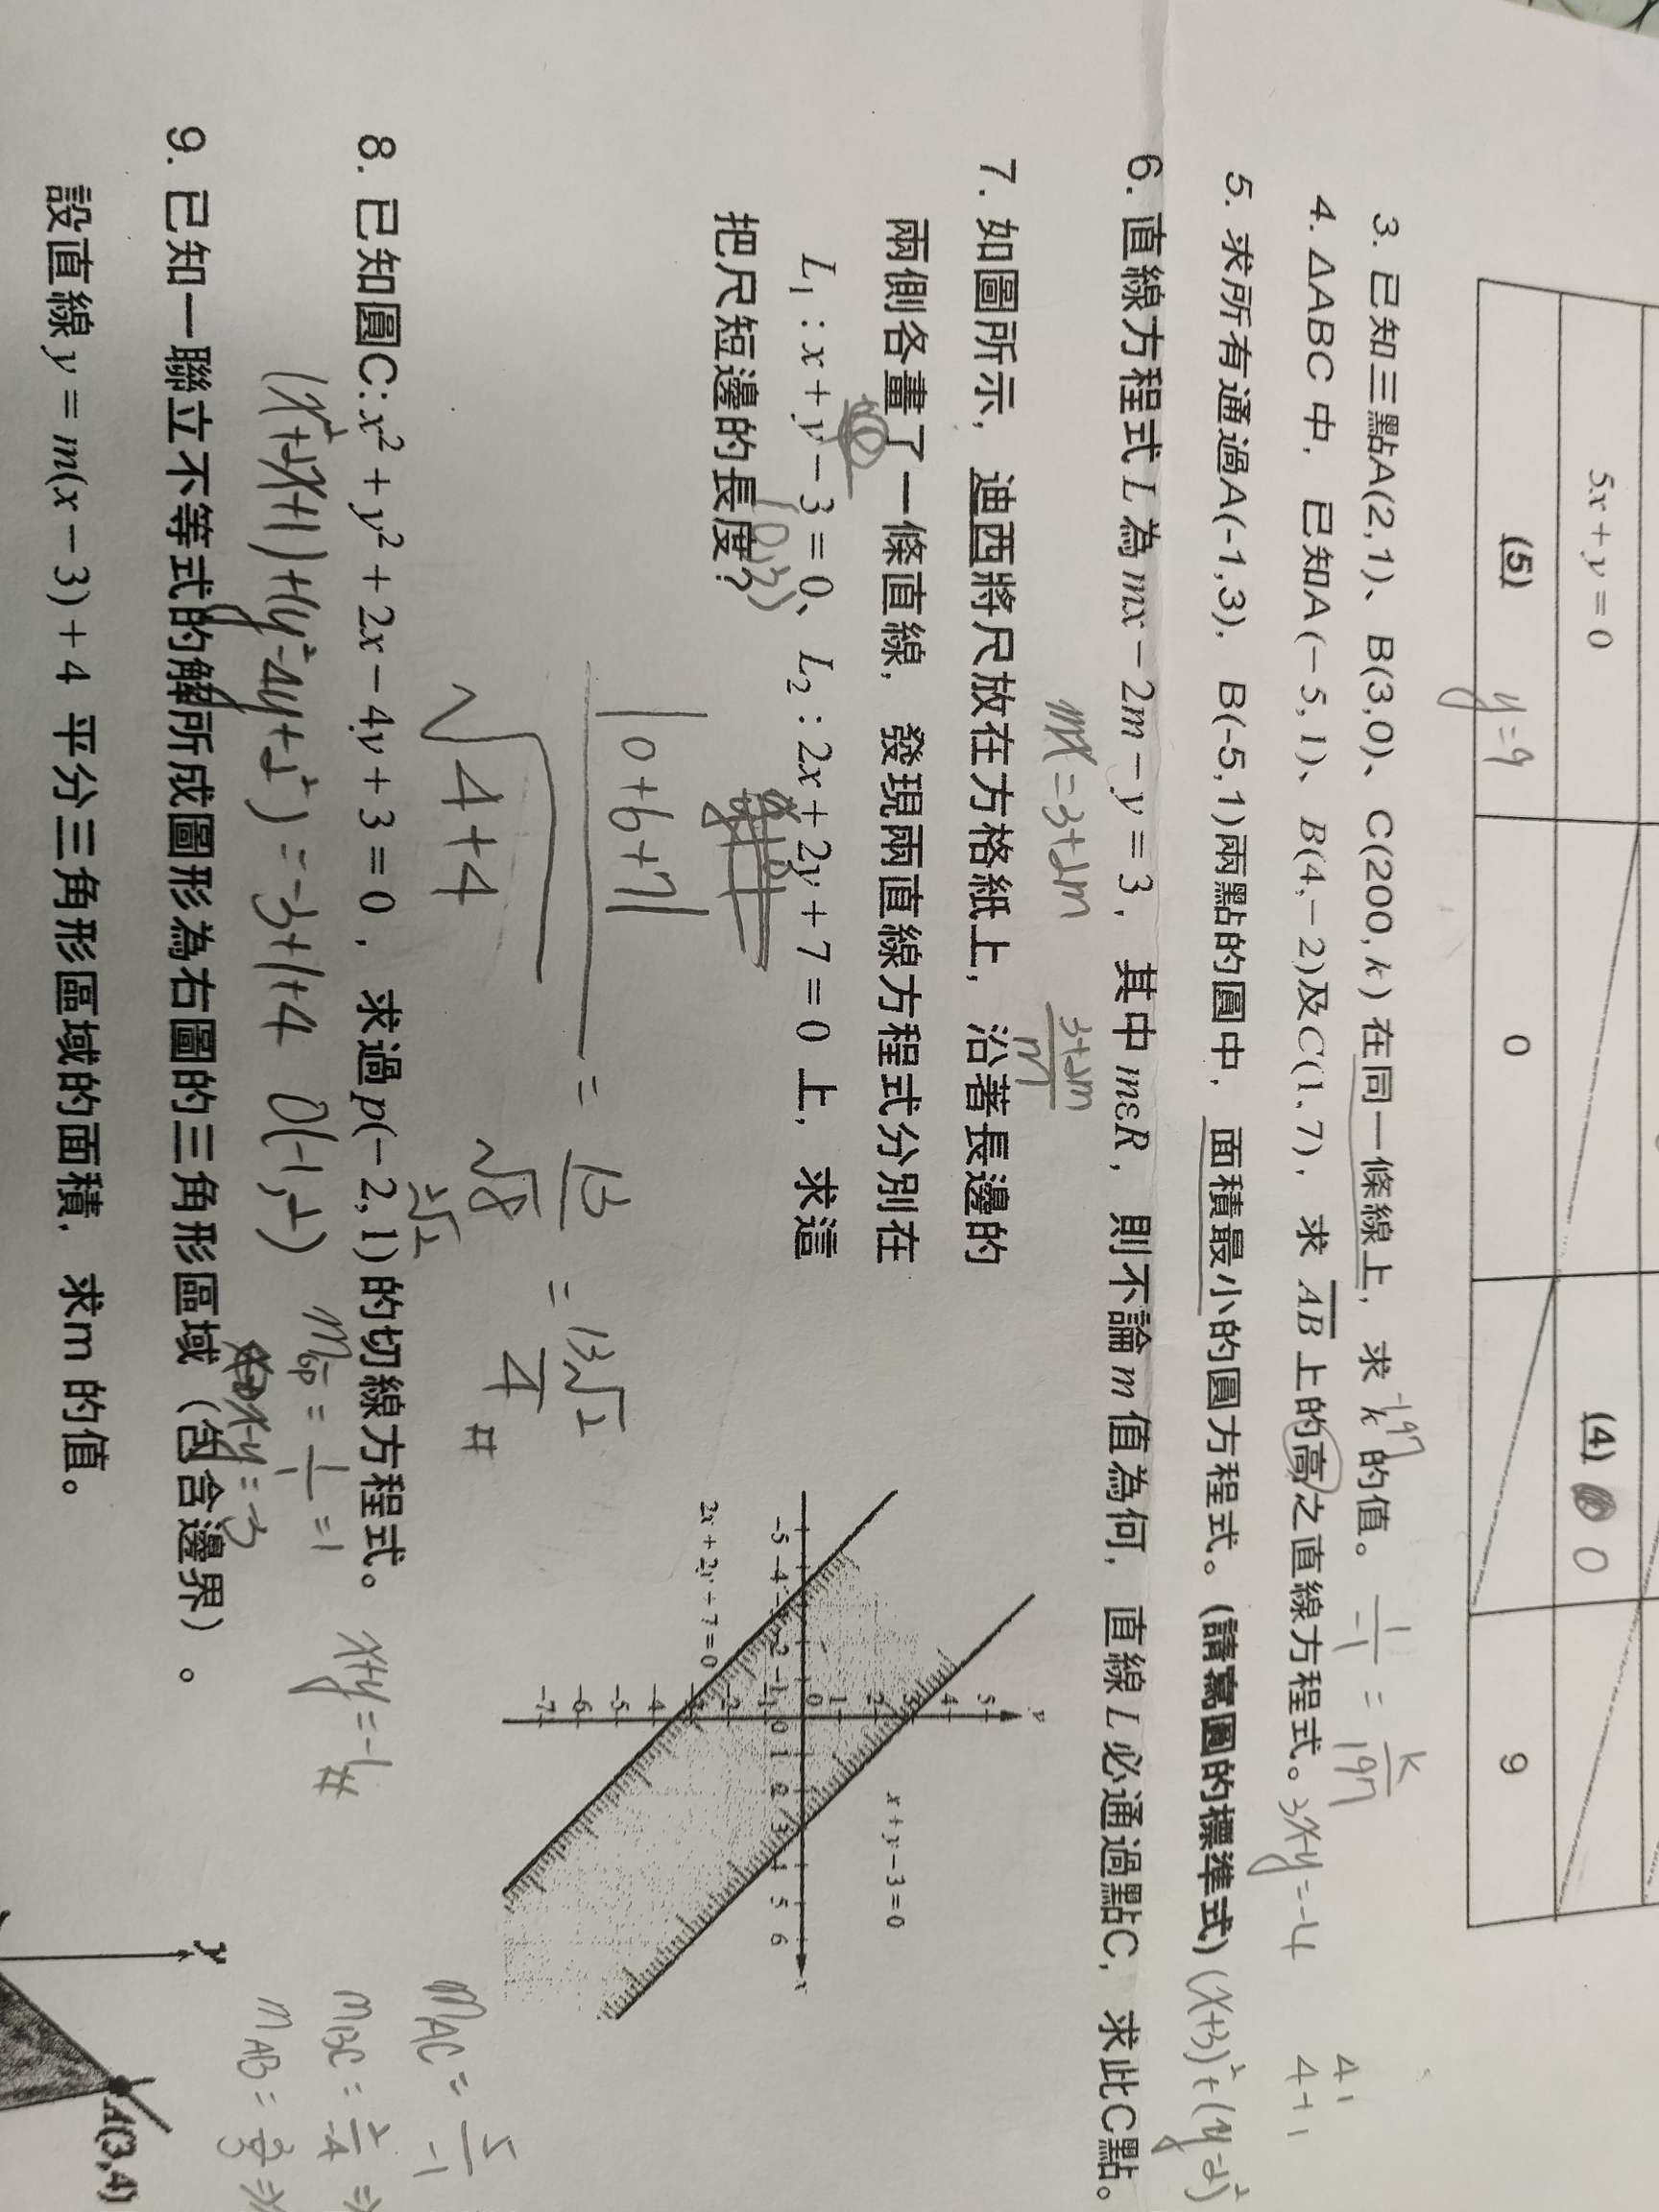 5x + y = 0
(4) 0
(5) y=9
0
9
3. 已知三點A(2,1)、B(3,0)、C(200,k) 在同一條線上，求 k 的值。
-197
1/-1 = k/197
4. △ABC 中，已知A(-5,1)、B(4,-2)及C(1,7)，求 AB 上的高之直線方程式。3x-y=-4
5. 求所有通過A(-1,3)，B(-5,1)兩點的圓中，面積最小的圓方程式。(請寫圓的標準式) (x+3)²+(y-2)²
6. 直線方程式 L 為 mx - 2m - y = 3，其中 mεR，則不論 m 值為何，直線 L 必通過點C，求此C點。
mx=3+2m
3+2m/m
7. 如圖所示，迪西將尺放在方格紙上，沿著長邊的
兩側各畫了一條直線，發現兩直線方程式分別在
L₁ : x + y - 3 = 0、L₂ : 2x + 2y + 7 = 0 上，求這
(0,3)
把尺短邊的長度？
|0+6+7|/√4+4 = 13/√8 = 13√2/4 #
2√2
y
x + y - 3 = 0
5
4
3
2
1
0
-5 -4 -2 -1 0 1 2 3 4 5 6 x
-2
-4
-5
-6
-7
2x + 2y + 7 = 0
8. 已知圓C: x² + y² + 2x - 4y + 3 = 0，求過p(-2,1)的切線方程式。
x+y=-1 #
(x²+2x+1)+(y²-4y+2²)=-3+1+4 O(-1,2)
x-y=-3
9. 已知一聯立不等式的解所成圖形為右圖的三角形區域（包含邊界）。
設直線 y = m(x - 3) + 4 平分三角形區域的面積，求m 的值。
m AC = 5/-1
m BC = 2/-4
m AB =
y
A(3,4)